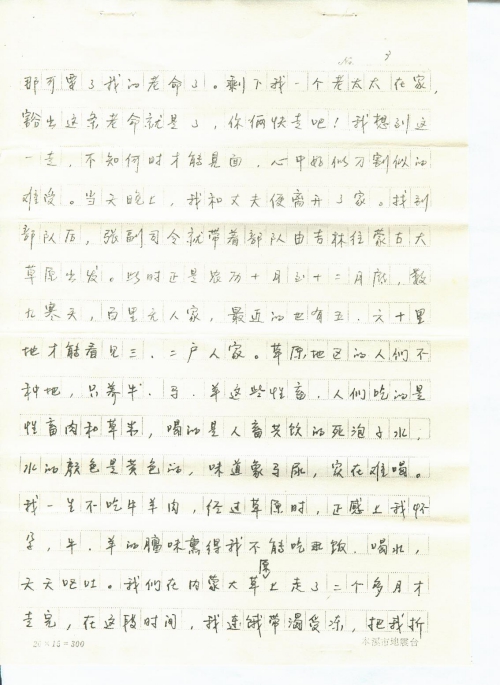 No. 9
那可要了我的老命了。剩下我一个老太太在家,
豁出这条老命就是了,你俩快走吧!我想到这
一走,不知何时才能见面,心中好似刀割似的
难受。当天晚上,我和丈夫便离开了家。找到
部队后,张副司令就带着部队由吉林往蒙古大
草原出发。此时正是农历十月至十二月底,数
九寒天,百里无人家,最近的也有五、六十里
地才能看见三、二户人家。草原地区的人们不
种地,只养牛、马、羊这些牲畜,人们吃的是
牲畜肉和草米,喝的是人畜共饮的死泡子水,
水的颜色是黄色的,味道象马尿,实在难喝。
我一生不吃牛羊肉,经过草原时,正赶上我怀
孕,牛、羊的膻味熏得我不能吃亚饭、喝水,
天天呕吐。我们在内蒙大草原上走了二个多月才
走完,在这段时间,我连饿带渴受冻,把我折
20×15=300
本溪市地震台